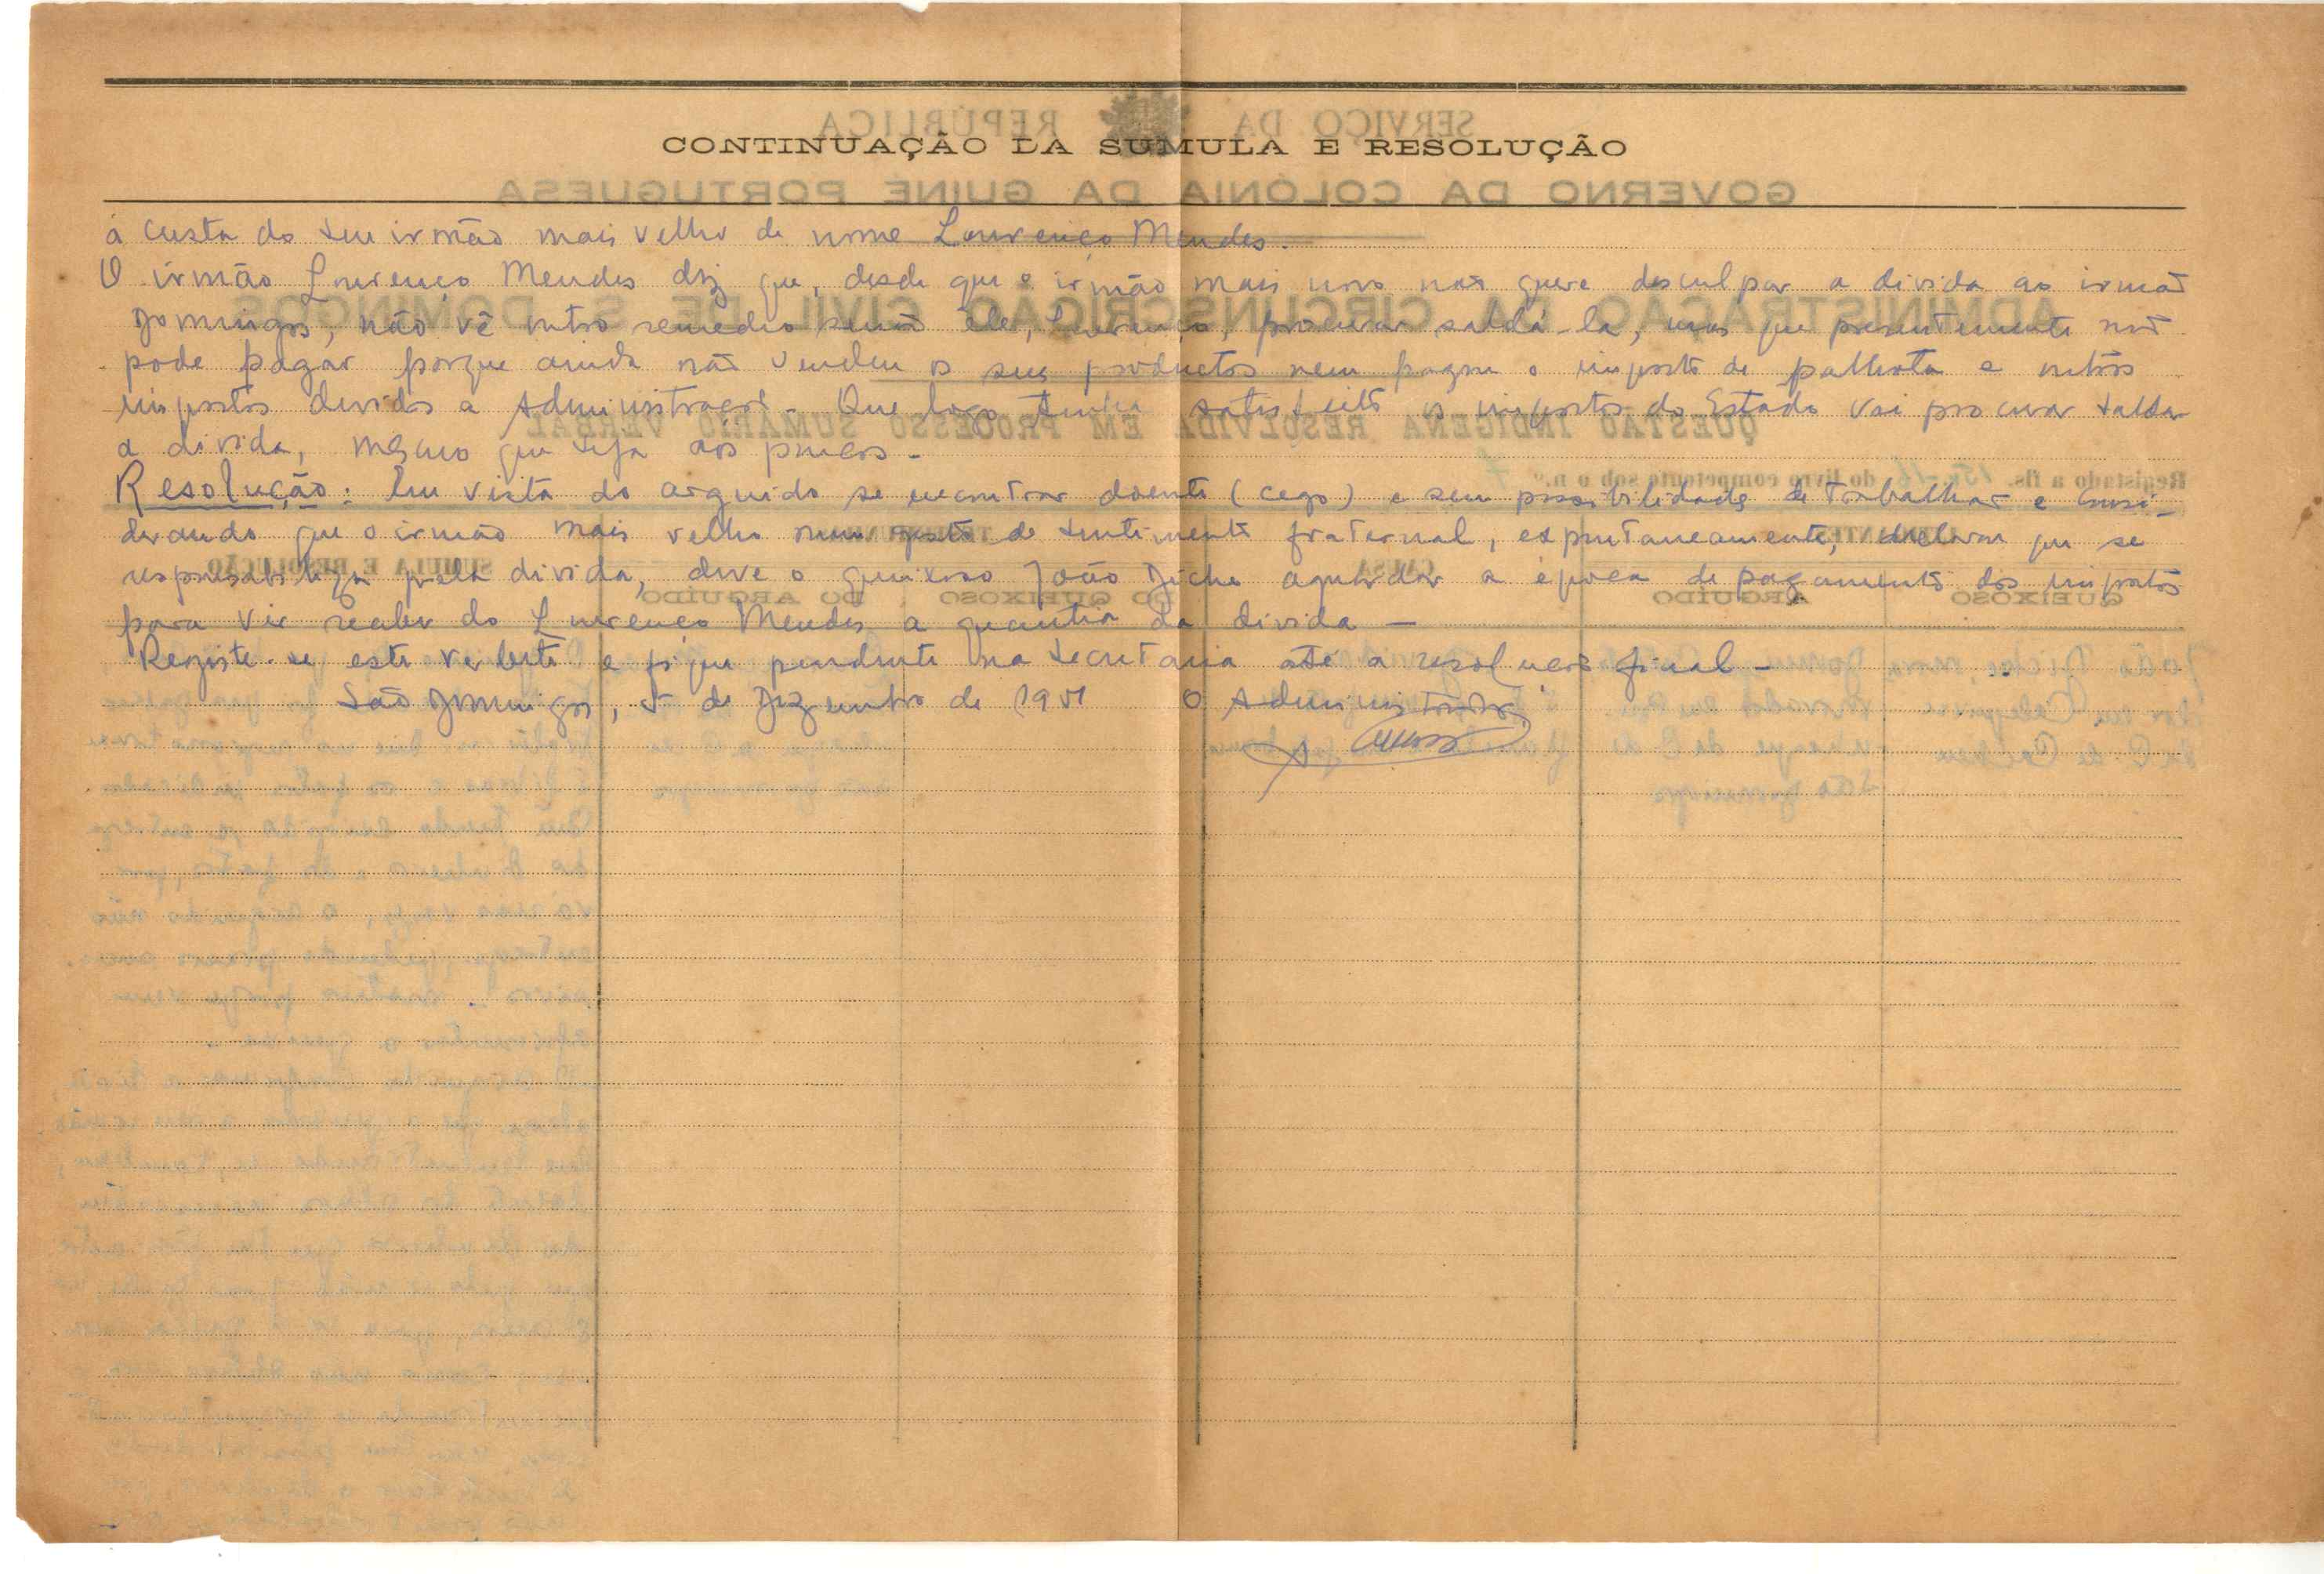 CONTINUAÇÃO DA SUMULA E RESOLUÇÃO
á custa do seu irmão mais velho de nome Lourenço Mendes.
O irmão Lourenço Mendes diz que, desde que o irmão mais novo não quere desculpar a divida ao irmão
Domingos, não vê outro remedio senão ele, Lourenço, procurar saldá-la, mas que presentemente não
pode pagar porque ainda não vendeu os seus productos nem pagou o imposto de palhota e outros
impostos devidos a Administração. Que logo tenha satisfeito os impostos do Estado vai procurar saldar
a divida, mesmo que seja aos poucos.
Resolução: Em vista do arguido se encontrar doente (cego) e sem possibilidade de trabalhar e consi-
derando que o irmão mais velho num gesto de sentimento fraternal, espontaneamente, declarou que se
responsabiliza pela divida, deve o queixoso João Diche aguardar a época de pagamento dos impostos
para vir receber do Lourenço Mendes a quantia da divida —
Registe-se este verbete e fique pendente na secretaria até a resolução final —
São Domingos, 5 de Dezembro de 1951 O Administrador,